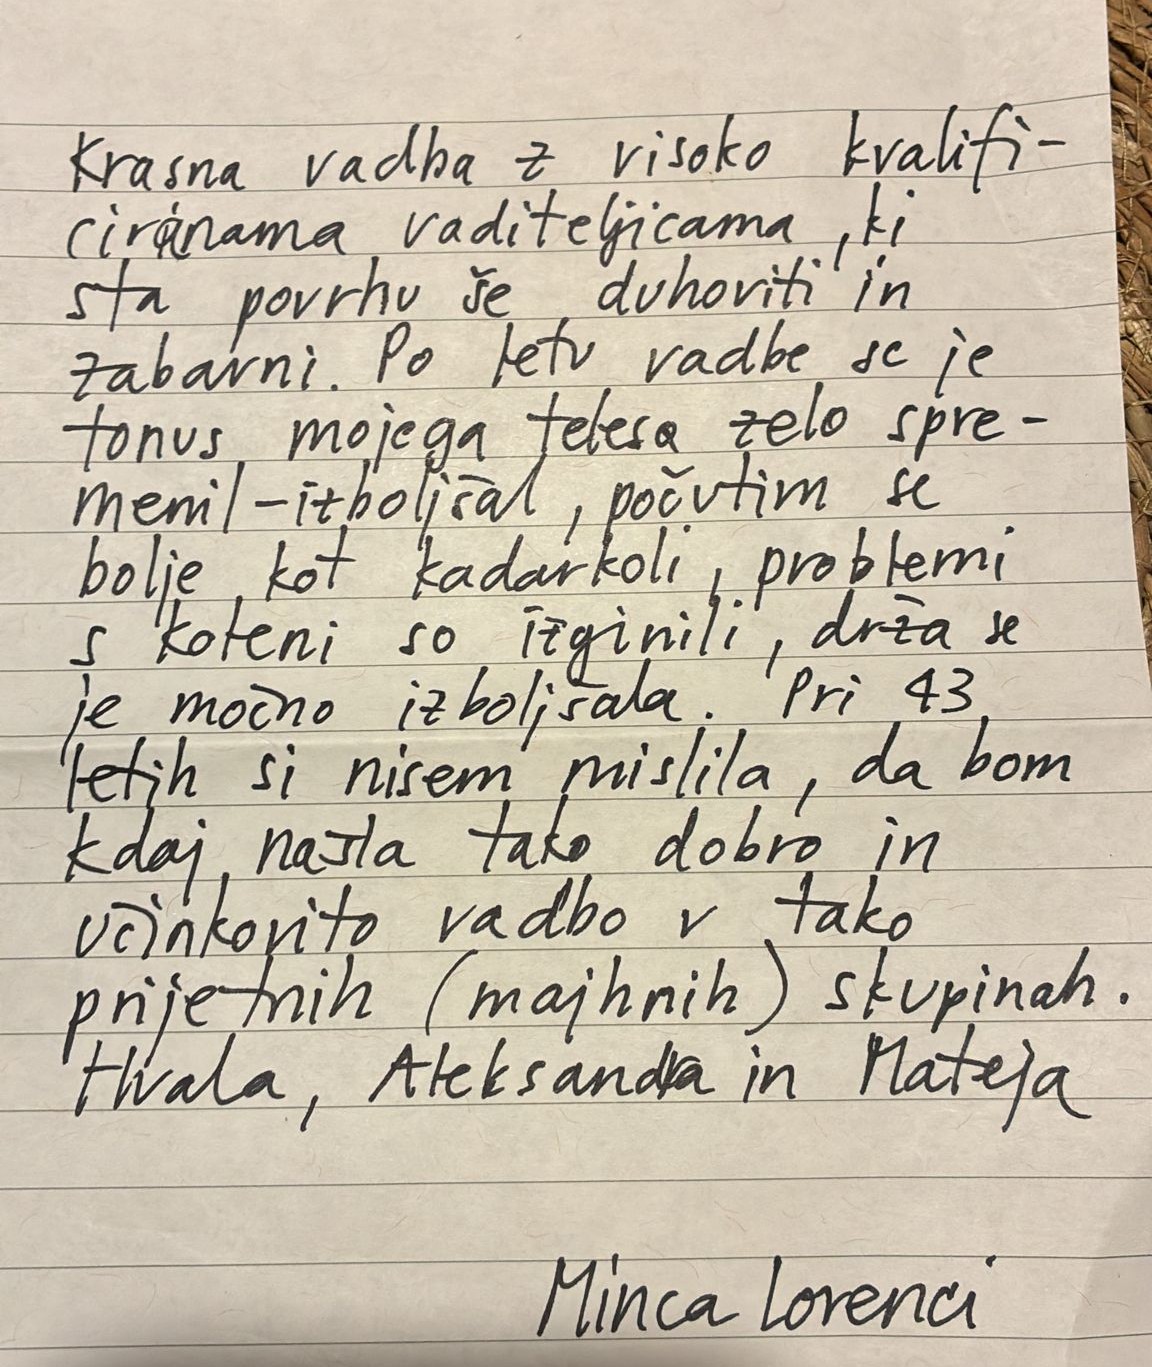 Krasna vadba z visoko kvalifi-
ciranama vaditeljicama, ki
sta povrhu še duhoviti in
zabavni. Po letu vadbe se je
tonus mojega telesa zelo spre-
menil - izboljšal, počutim se
bolje kot kadarkoli, problemi
s koleni so izginili, drža se
je močno izboljšala. Pri 43
letih si nisem mislila, da bom
kdaj našla tako dobro in
učinkovito vadbo v tako
prijetnih (majhnih) skupinah.
Hvala, Aleksandra in Mateja
Minca Lorenci